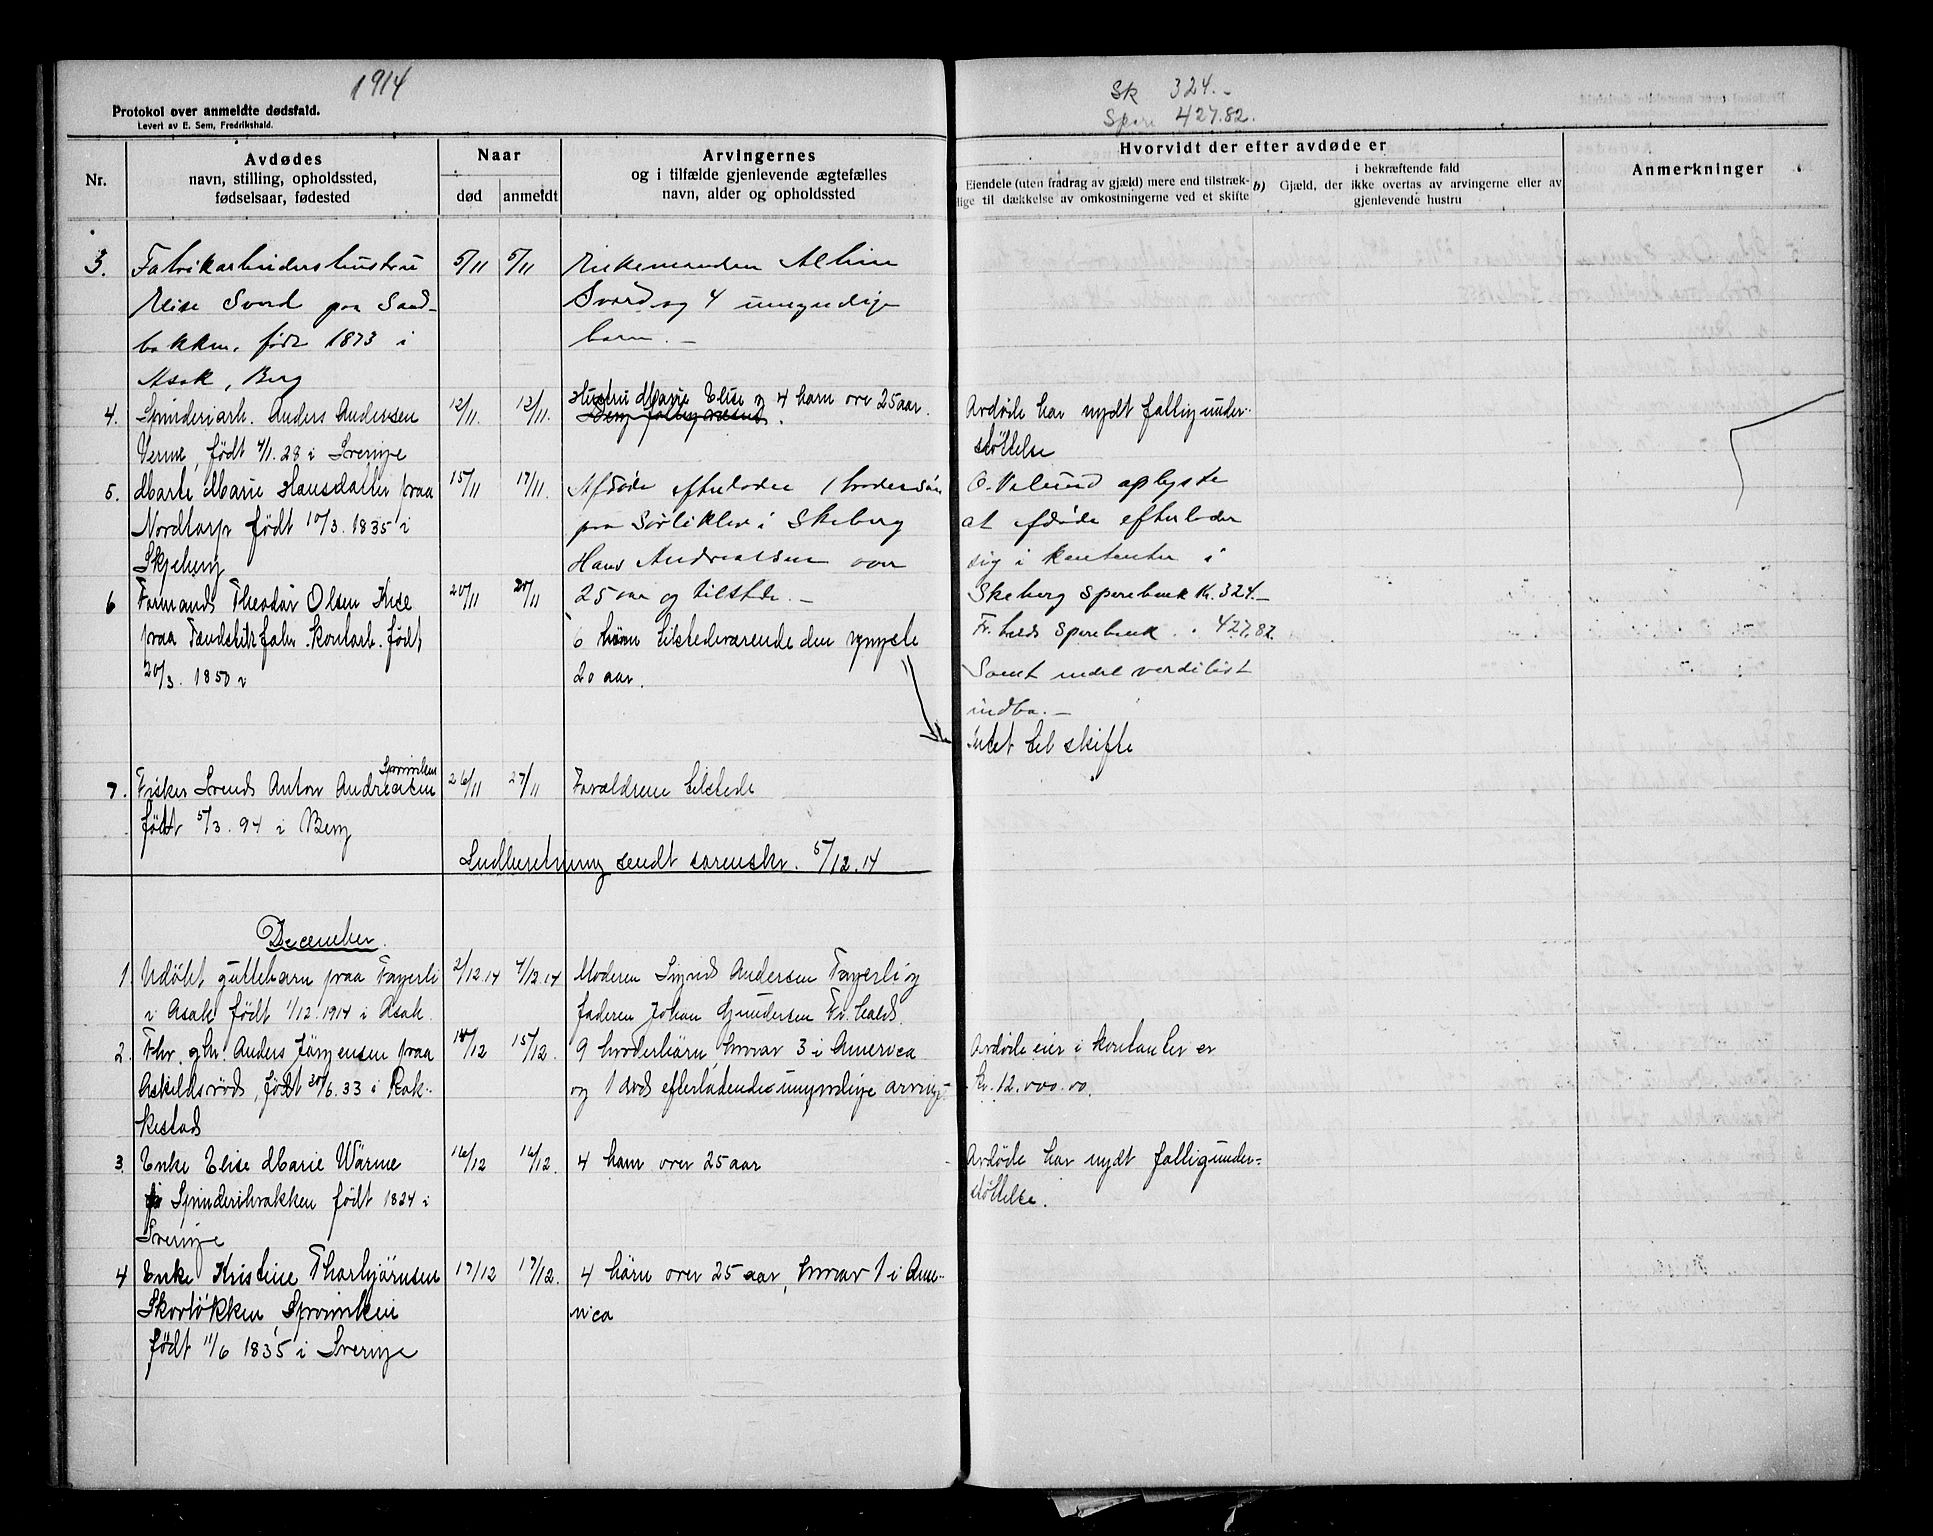 1914
Protokol over anmeldte dødsfald.
Levert av E. Sem, Fredrikshald.
Sk 324.-
Spare 427.82.
Nr.
Avdødes
navn, stilling, opholdssted,
fødselsaar, fødested
Naar
død
anmeldt
Arvingernes
og i tilfælde gjenlevende ægtefælles
navn, alder og opholdssted
Hvorvidt der efter avdøde er
Eiendele (uten fradrag av gjæld) mere end tilstræk-
lige til dækkelse av omkostningerne ved et skifte
b) Gjæld, der i bekræftende fald
ikke overtas av arvingerne eller av
gjenlevende hustru
Anmerkninger
3. Fabrikarbeidershustru 5/11 5/11 Enkemanden Albin
Elise Svard paa Sand- Svard og 4 umyndige
bakken, født 1873 i barn. -
Asak, Berg
4. Spinderiarb. Anders Andersen 12/11. 13/11. Hustru Marie Elise og 4 barn over 25 aar. Avdøde har nydt fattigunder-
Verme, født 4/1. 28 i Sverige støttelse
5. Marte Marie Hansdatter paa 15/11 17/11. Afdøde efterlader 1 brodersøn O. Velund oplyste
Nordtorp født 10/3. 1835 i paa Sørliklev i Skeberg at afdøde efterlader
Skjeberg Hans Andreassen over sig i kontanter i
6 Formand Theodor Olsen Hree 20/11 20/11 25 aar og tilstede. - Skeberg Sparebank Kr. 324.-
paa Tændstikfabr. kontarb. født 6 børn tilstedeværende den yngste Fr.halds Sparebank . . 427.82
20/3. 1850 i 20 aar. Samt endel verdiløst
indbo. -
Intet til skifte
7. Fisker Svend Anton Andreasen Sponviken 26/11 27/11 Forældrene tilstede
født 5/3. 94 i Berg
Indberetning sendt sorenskr. 5/12.14
December.
1. Udøbt guttebarn paa Fagerli 2/12.14 4/12.14 Moderen Signe Andersen Fagerli og
i Asak født 1/12.1914 i Asak. faderen Johan Gundersen Fr.hald.
2. Fhv. gbr. Anders Jørgensen paa 14/12 15/12. 9 broderbørn hvorav 3 i Amerika Avdøde eier i kontanter er
Askildsrød, født 20/6.33 i Rak- og 1 død efterladende umyndige arving- kr. 12.000.00.
kestad
3. Enke Elise Marie Wärme 16/12 16/12. 4 barn over 25 aar Avdøde har nydt fattigunder-
Spinderibrakken født 1824 i støttelse.
Sverige
4 Enke Kristine Thorbjørnsen 17/12 17/12. 4 børn over 25 aar, hvorav 1 i Ame-
Skovløkken, Sponviken rica
født 11/6 1835 i Sverige